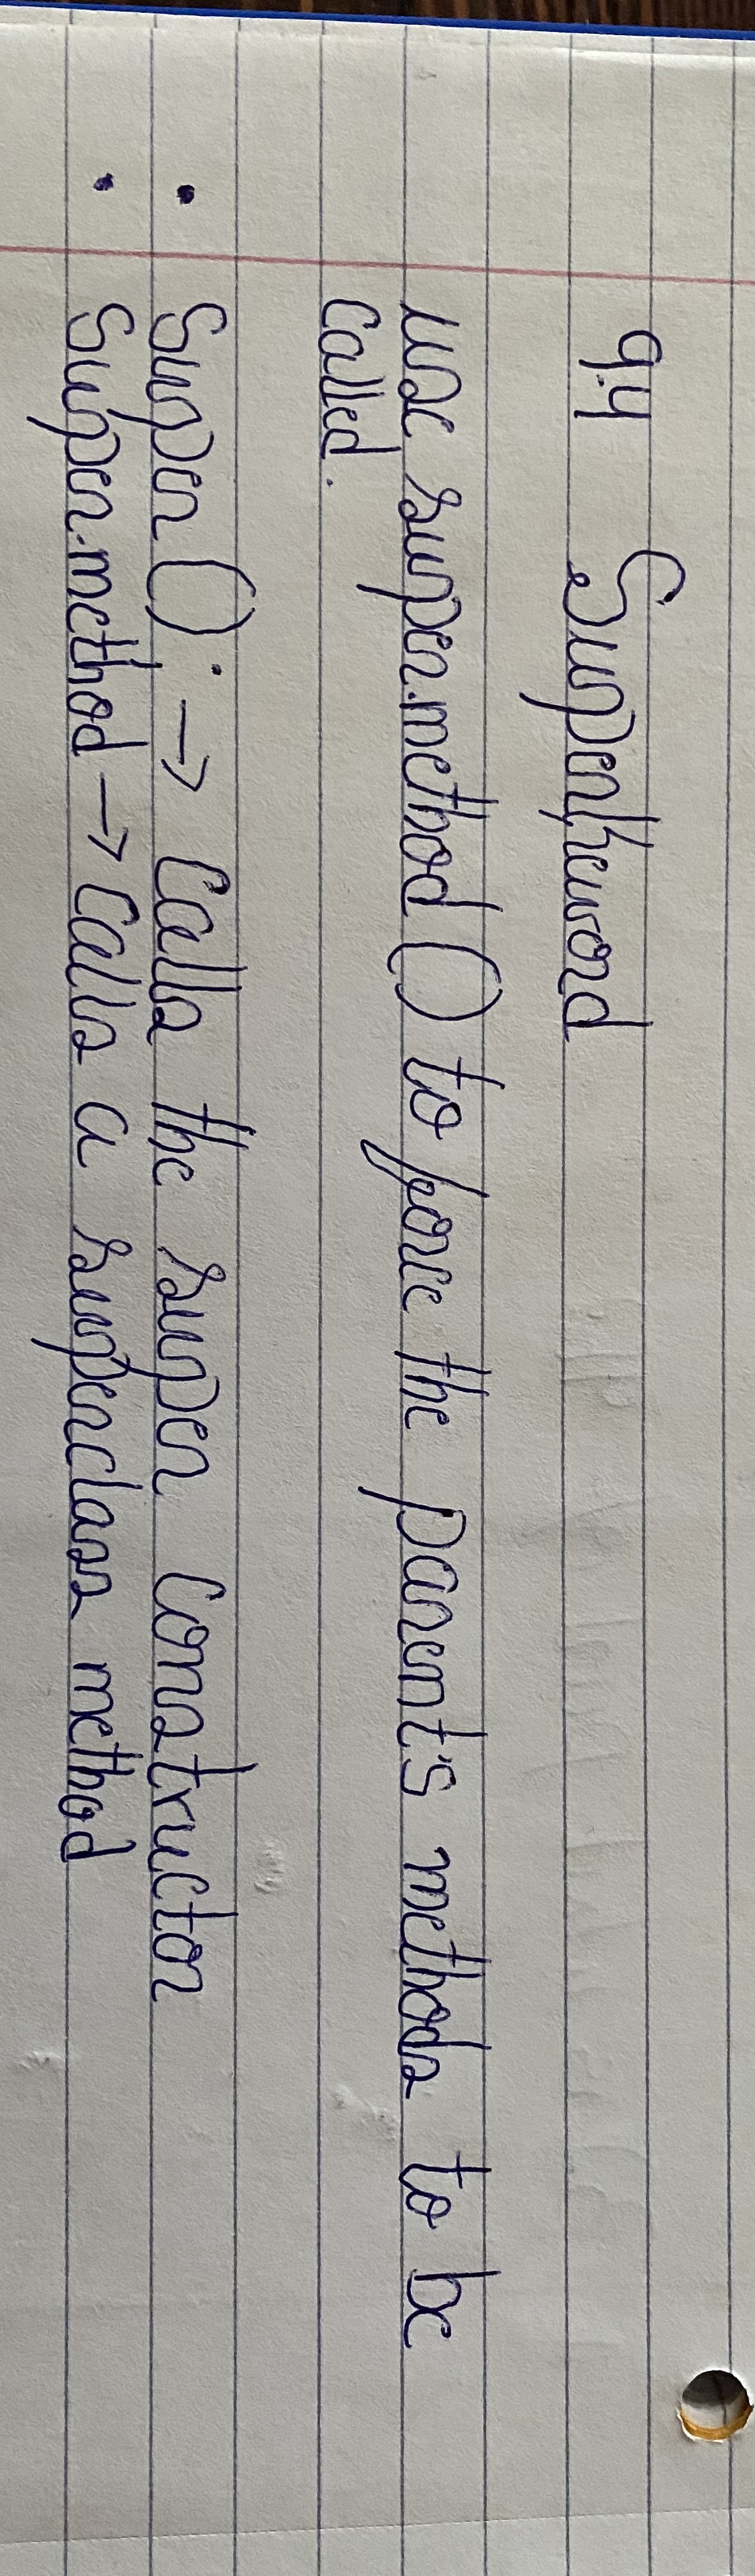 9.4 Super Keword
use super.method () to force the parent's methods to be
called.
• Super (); → Calls the super constructor
• Super.method → calls a superclass method